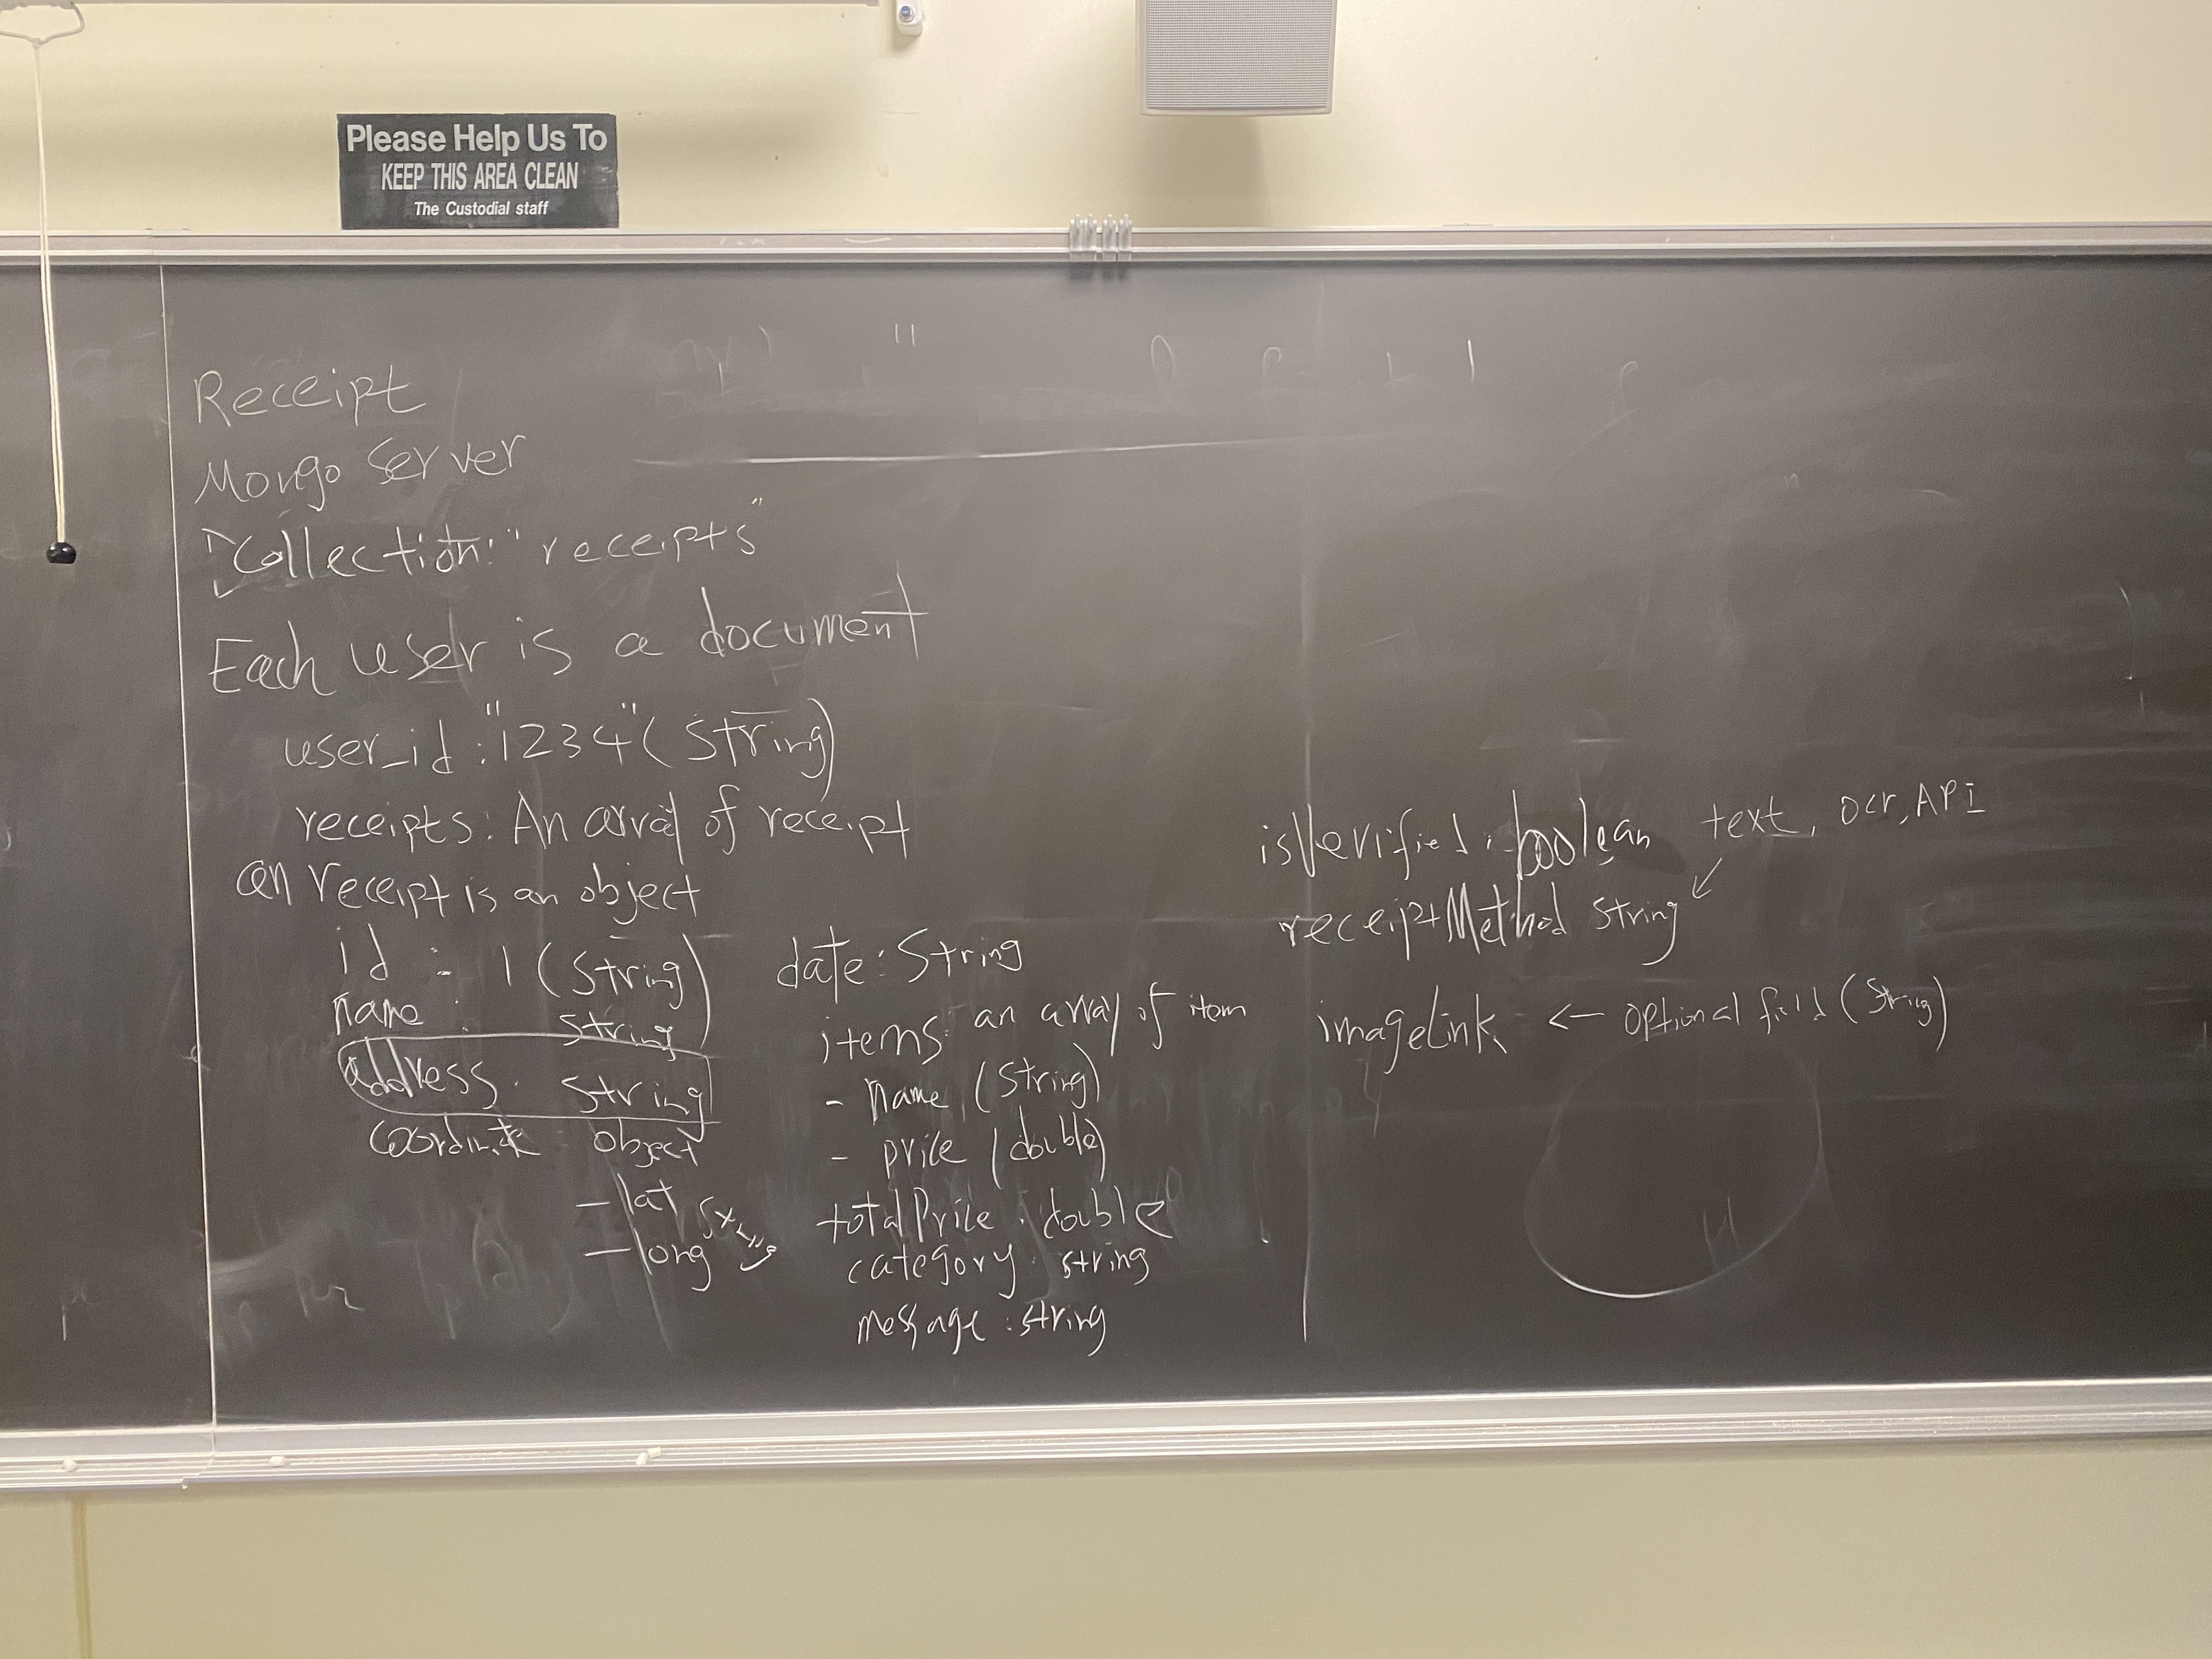 Please Help Us To
KEEP THIS AREA CLEAN
The Custodial staff
Receipt
Mongo Server
Collection: "receipts"
Each user is a document
user_id : "1234" (String)
receipts: An array of receipt
an receipt is an object
id : 1 (String)
name : String
address : String
Coordinate object
- lat String
- long
date: String
items: an array of item
- name (String)
- price (double)
totalPrice : double
category : string
message : string
isVerified : boolean
text, ocr, API
receiptMethod String
imageLink <- optional field (String)